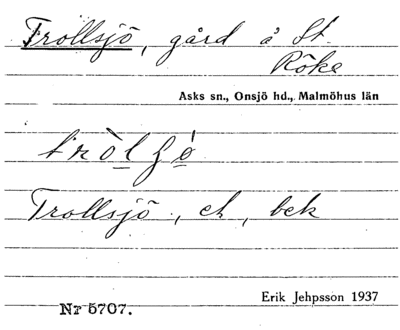 Trollsjö, gård å St.
Röke
Asks sn., Onsjö hd., Malmöhus län
Trollsjö, ek, bek
Erik Jehpsson 1937
Nr 5707.